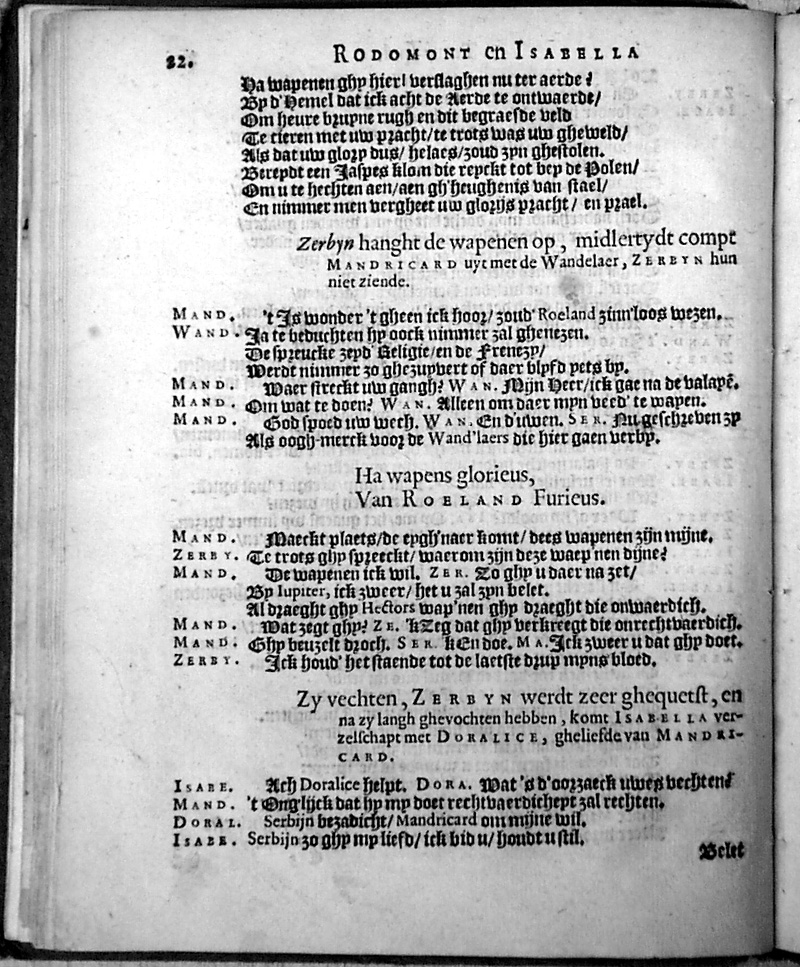 22. RODOMONT en ISABELLA
Ha wapenen ghy hier! verslaghen nu ter aerde?
By d'Hemel dat ick acht de Aerde te ontwaerde/
Om heure bruyne rugh en dit begraesde veld
Te cieren met uw pracht/te trots was uw gheweld/
Als dat uw glory dus/ helaes/zoud zyn ghestolen.
Bereydt een Jaspes klom die reyckt tot bey de Polen/
Om u te hechten aen/aen gh'heughenis van stael/
En nimmer men vergheet uw glorijs pracht/ en prael.
Zerbyn hanght de wapenen op, midlertydt compt
MANDRICARD uyt met de Wandelaer, ZERBYN hun
niet ziende.
MAND. 't Is wonder 't gheen ick hoor/ zoud' Roeland zinn'loos wezen.
WAND. Ja te beduchten hy oock nimmer zal ghenezen.
De spreucke zeyd' Religie/en de Frenezy/
Werdt nimmer zo ghezuyvert of daer blyfd yets by.
MAND. Waer streckt uw gangh? WAN. Mijn Heer/ick gae na de valaye.
MAND. Om wat te doen? WAN. Alleen om daer myn veed' te wapen.
MAND. God spoed uw wech. WAN. En d'uwen. SER. Nu geschreven zy
Als oogh-merck voor de Wand'laers die hier gaen verby.
Ha wapens glorieus,
Van ROELAND Furieus.
MAND. Maeckt plaets/de eygh'naer komt/ dees wapenen zijn mijne.
ZERBY. Te trots ghy spreeckt/waerom zijn deze waep'nen dijne?
MAND. De wapenen ick wil. ZER. Zo ghy u daer na zet/
By Iupiter, ick zweer/ het u zal zyn belet.
Al draeght ghy Hectors wap'nen ghy draeght die onwaerdich.
MAND. Wat zegt ghy? ZE. 'k Zeg dat ghy verkreegt die onrechtvaerdich.
MAND. Ghy beuzelt droch. SER. k En doe. MA. Ick zweer u dat ghy doet.
ZERBY. Ick houd' het staende tot de laetste drup myns bloed.
Zy vechten, ZERBYN werdt zeer ghequetst, en
na zy langh ghevochten hebben, komt ISABELLA ver-
zelschapt met DORALICE, gheliefde van MANDRI-
CARD.
ISABE. Ach Doralice helpt. DORA. Wat 's d'oorzaeck uwes vechten?
MAND. 't Ong'lijck dat hy my doet rechtvaerdicheyt zal rechten.
DORAL. Serbijn bezadicht/ Mandricard om mijne wil.
ISABE. Serbijn zo ghy my liefd/ ick bid u/ houdt u stil.
Belet